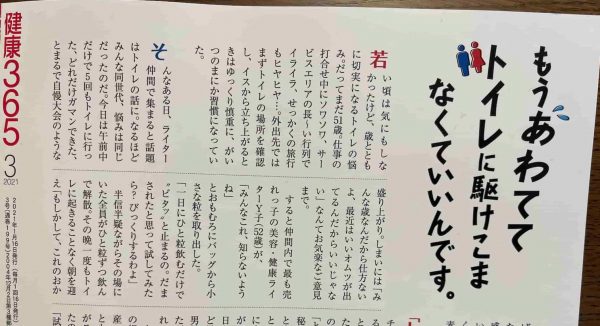 もうあわてて
トイレに駆けこま
なくていいんです。
若い頃は気にもしな
かったけど、歳ととも
に切実になるトイレの悩
み。だってまだ51歳。仕事の
打合せ中にソワソワ、サー
ビスエリアの長〜い行列で
イライラ、せっかくの旅行
もヒヤヒヤ…外出先では
まずトイレの場所を確認
し、イスから立ち上がると
きはゆっくり慎重に、がい
つのまにか習慣になってい
た。
そんなある日、ライター
仲間で集まると話題
はトイレの話に。なるほど
みんな同世代、悩みは同じ
だったのだ。今日は午前中
だけで5回もトイレに行っ
た、どれだけガマンできた、
とまるで自慢大会のような
盛り上がり。しまいには「み
んな歳なんだから仕方ない
よ、最近はいいオムツが出
てるんだからいいじゃな
い」なんてお気楽なご意見
まで。
すると仲間内で最も売
れっ子の美容・健康ライ
ターY子(52歳)が、
「みんなこれ、知らないよう
ね」
とおもむろにバッグから小
さな粒を取り出した。
「一日にひと粒飲むだけで
“ピタッ”と止まるの。だま
されたと思って試してみた
ら? びっくりするわよ」
半信半疑ながらその場に
いた全員がひと粒ずつ飲ん
で解散。その晩、一度もトイ
レに起きることなく朝を迎
え「もしかして、これのおか
健康365
3
2021
2021年1月16日発行(毎月1回16日発行)